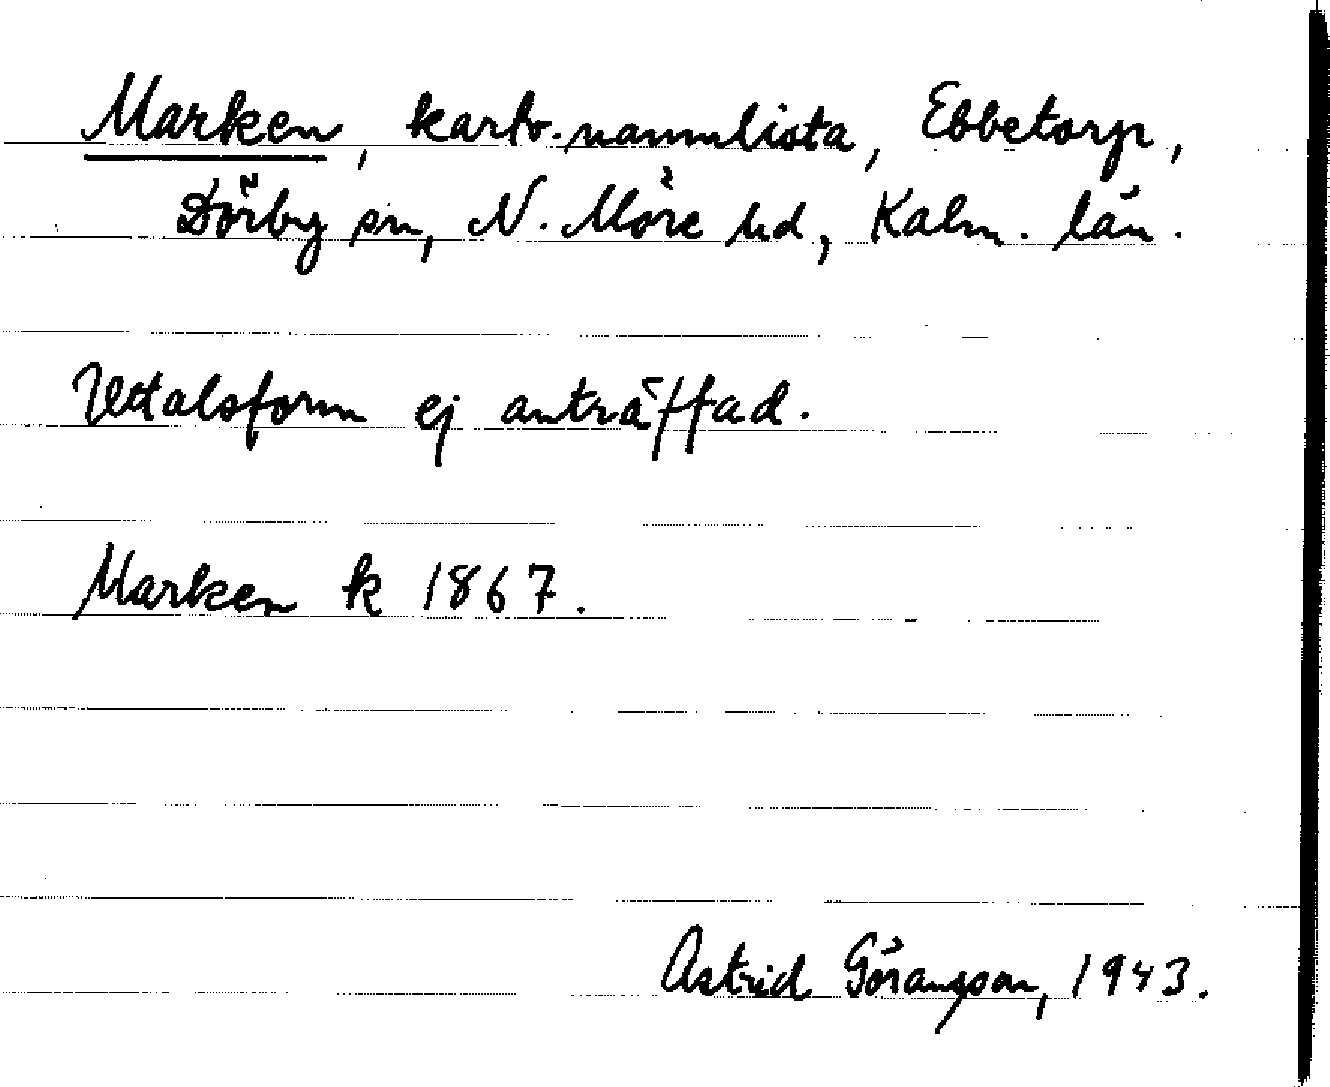 Marken, kartv. namnlista, Ebbetorp,
Dörby sn, N. Möre hd, Kalm. län.
Uttalsform ej anträffad.
Marken k 1867.
Astrid Göransson, 1943.